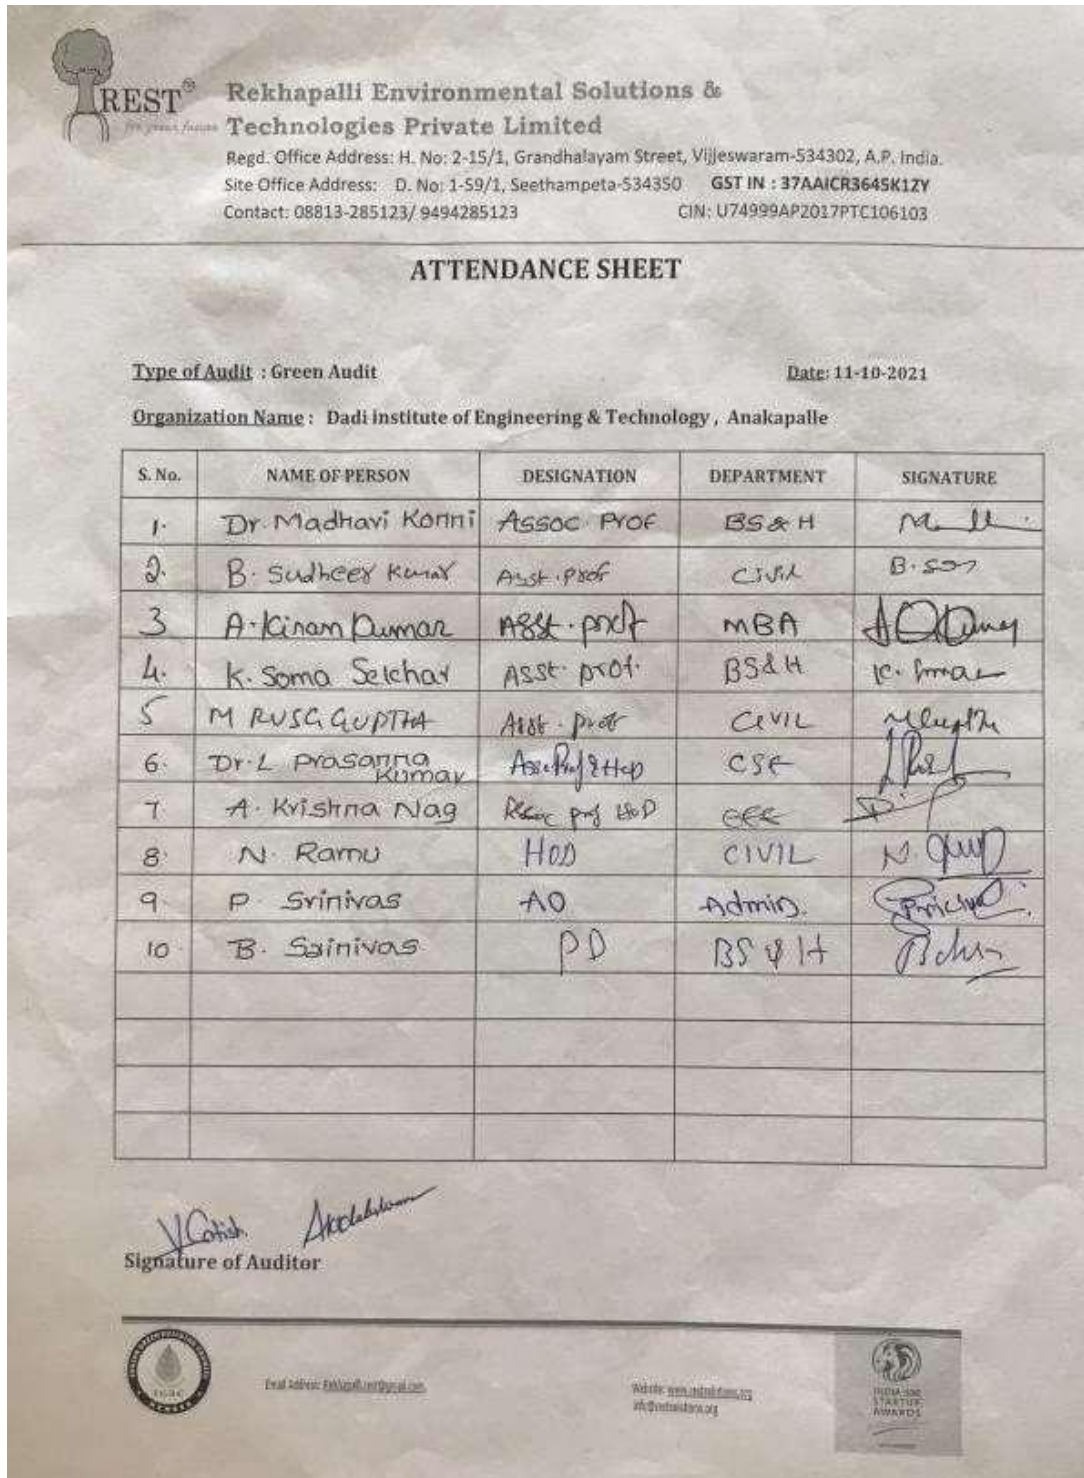 REST®
for green future
Rekhapalli Environmental Solutions &
Technologies Private Limited
Regd. Office Address: H. No: 2-15/1, Grandhalayam Street, Vijjeswaram-534302, A.P. India.
Site Office Address: D. No: 1-59/1, Seethampeta-534350 GST IN : 37AAICR3645K1ZY
Contact: 08813-285123/ 9494285123 CIN: U74999AP2017PTC106103
ATTENDANCE SHEET
Type of Audit : Green Audit Date: 11-10-2021
Organization Name : Dadi institute of Engineering & Technology , Anakapalle
S. No. NAME OF PERSON DESIGNATION DEPARTMENT SIGNATURE
1. Dr. Madhavi Konni Assoc Prof BS&H
2. B. Sudheer Kumar Asst. Prof Civil
3 A. Kiram Kumar Asst. prof MBA
4. K. Soma Sekhar Asst. prof. BS&H
5 M RUSG GUPTHA Asst. prof CIVIL
6. Dr. L Prasanna Kumar Asso Prof & HoD CSE
7 A. Krishna Nag Assoc prof HoD EEE
8. N. Ramu HOD CIVIL
9. P. Srinivas AO Admin.
10. B. Srinivas PD BS & H
Signature of Auditor
IGBC
MEMBER
Email Address: Rekhapalli.rest@gmail.com
Website:
INDIA 500
STARTUP
AWARDS